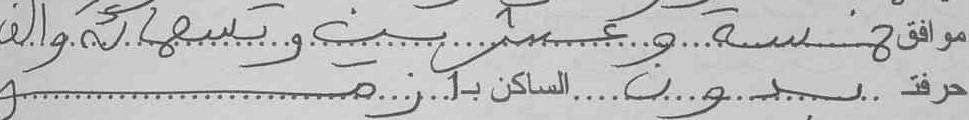 موافق خمسة و عشرين و تسعمائة والف
حرفته بدون الساكن بـ ازمـــور